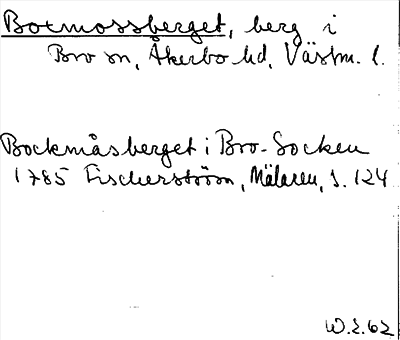 Botmossberget, berg i
Bro sn, Åkerbo hd, Västm. l.
Bockmåsberget i Bro-Socken
1785 Fischerström, Mälaren, s. 124
W.E.62